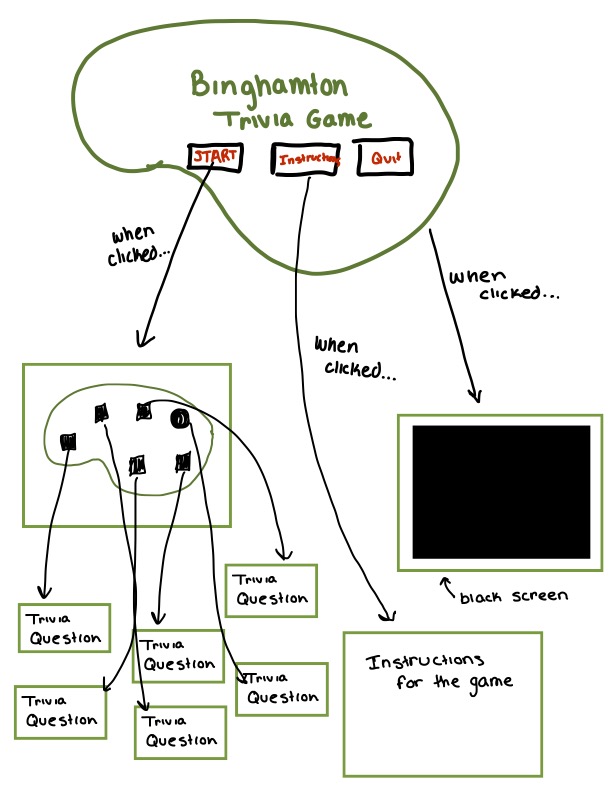 Binghamton
Trivia Game
START
Instructions
Quit
when
clicked...
when
clicked...
when
clicked...
black screen
Trivia
Question
Trivia
Question
Trivia
Question
Trivia
Question
Trivia
Question
Trivia
Question
Instructions
for the game